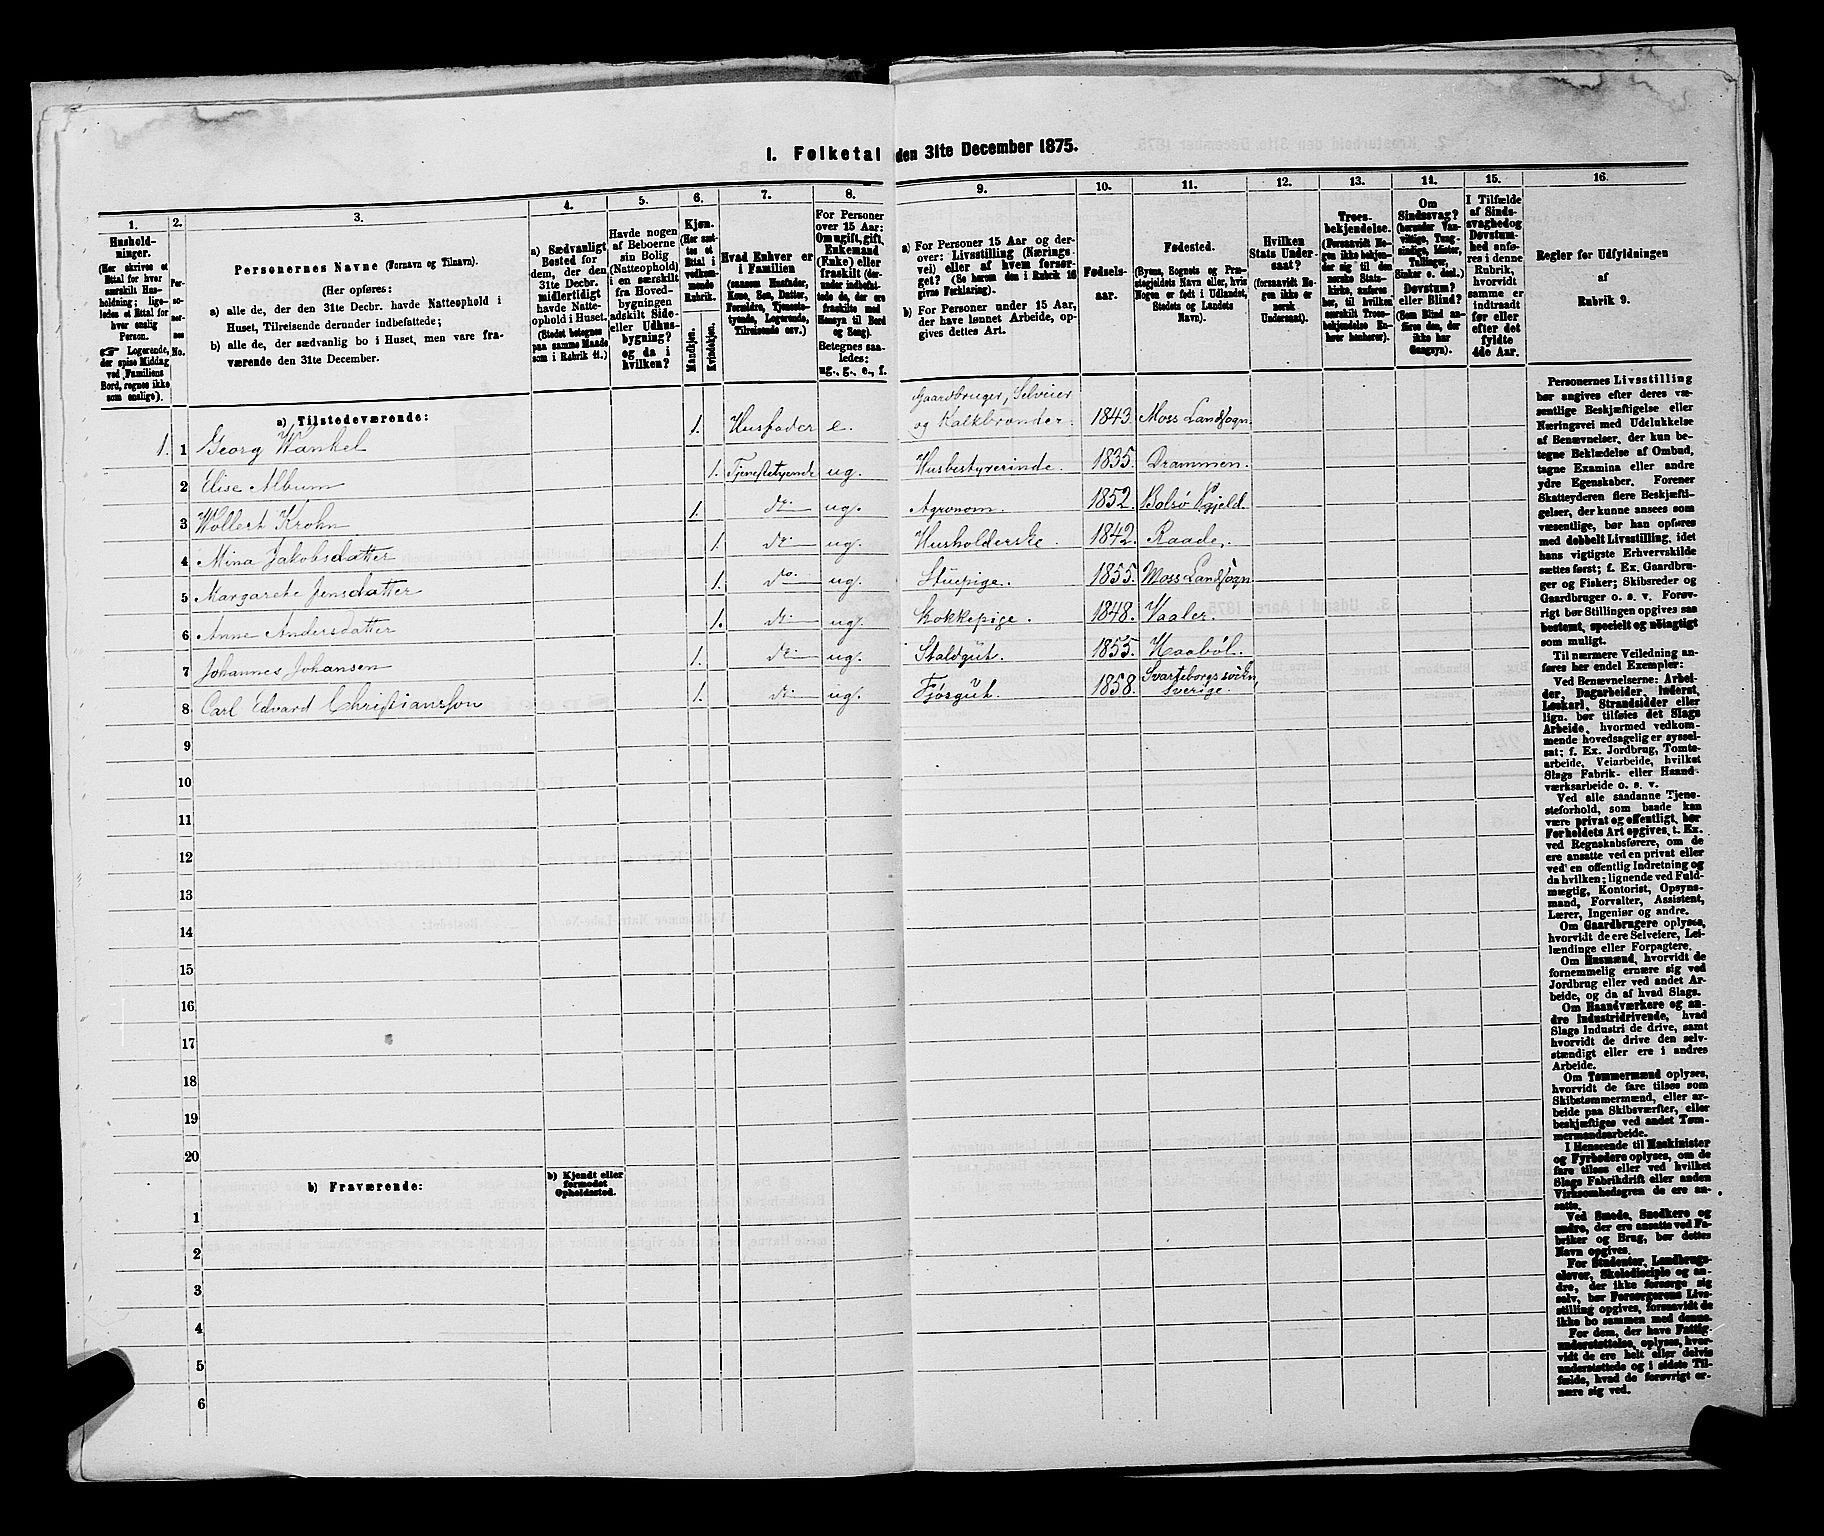 I. Folketal den 31te December 1875.
1.
Husholdninger.
(Her skrives et Ettal for hver særskilt Husholdning; ligeledes et Ettal for hver enslig Person.
☞ Logerende, der spise Middag ved Familiens Bord, regnes ikke som enslige).
2.
Personernes No.
3.
Personernes Navne (Fornavn og Tilnavn).
(Her opføres:
a) alle de, der den 31te Decbr. havde Natteophold i Huset, Tilreisende derunder indbefattede;
b) alle de, der sædvanlig bo i Huset, men vare fraværende den 31te December.
4.
a) Sædvanligt Bosted for dem, der den 31te Decbr. midlertidigt havde Natteophold i Huset.
(Stedet betegnes paa samme Maade som i Rubrik 11.)
5.
Havde nogen af Beboerne sin Bolig (Natteophold) i en særskilt fra Hovedbygningen adskilt Side- eller Udhusbygning? og da i hvilken?
6.
Kjøn.
(Her sættes et Ettal i vedkommende Rubrik.
Mandkjøn.
Kvindekjøn.
7.
Hvad Enhver er i Familien
(saasom Husfader, Kone, Søn, Datter, Forældre, Tjenestetyende, Logerende, Tilreisende osv.)
8.
For Personer over 15 Aar: Om ugift, gift, Enkemand (Enke) eller fraskilt
Betegnes saaledes: ug., g., e., f.
9.
a) For Personer 15 Aar og derover: Livsstilling (Næringsvei) eller af hvem forsørget? (Se herom den i Rubrik 16 givne Forklaring).
b) For Personer under 15 Aar, der have lønnet Arbeide, opgives dettes Art.
10.
Fødselsaar.
11.
Fødested.
(Byens, Sognets og Præstegjeldets Navn eller, hvis Nogen er født i Udlandet, Stedets og Landets Navn).
12.
Hvilken Stats Undersaat?
(forsaavidt Nogen ikke er norsk Undersaat).
13.
Troesbekjendelse.
(Forsaavidt Nogen ikke bekjender sig til den norske Statskirke, anføres her, til hvilken særskilt Troesbekjendelse Enhver henhører).
14.
Om Sindssvag?
Døvstum? eller Blind?
(Som Blind anføres den, der ikke har Gangsyn).
15.
I Tilfælde af Sindssvaghed og Døvstumhed anføres i denne Rubrik, hvorvidt samme er indtraadt før eller efter det fyldte 4de Aar.
16.
Regler for Udfyldningen
af
Rubrik 9.
a) Tilstedeværende:
1. 1 Georg Wankel 1. Husfader e. Gaardbruger, Selveier og Kalkbrænder. 1843. Moss Landsogn.
2 Elise Album 1. Tjenestetyende ug. Husbestyrerinde. 1835. Drammen.
3 Wollert Krohn 1. do ug. Agronom. 1852. Bolsø Pgjeld.
4 Mina Jakobsdatter 1. do ug. Husholderske. 1842. Raade.
5 Margarete Jensdatter 1. do. ug. Stuepige. 1855. Moss Landsogn
6 Anne Andersdatter 1. do ug. Kokkepige. 1848. Vaaler.
7 Johannes Johansen 1. do ug. Staldgut. 1855. Haabøl.
8 Carl Edvard Christiansson 1. do ug. Fjøsgut. 1858. Svarteborgs sokn, Sverige.
9
10
11
12
13
14
15
16
17
18
19
20
b) Fraværende:
b) Kjendt eller formodet Opholdssted.
1
2
3
4
5
6
Personernes Livsstilling
bør angives efter deres væ-
sentlige Beskjæftigelse eller
Næringsvei med Udelukkelse
af Benævnelser, der kun be-
tegne Beklædelse af Ombud,
tagne Examina eller andre
ydre Egenskaber. Forener
Skatteyderen flere Beskjæfti-
gelser, der kunne ansees som
væsentlige, bør han opføres
med dobbelt Livsstilling, idet
hans vigtigste Erhvervskilde
sættes først; f. Ex. Gaardbru-
ger og Fisker; Skibsreder og
Gaardbruger o. s. v. Forøv-
rigt bør Stillingen opgives saa
bestemt, specielt og nøiagtigt
som muligt.
Til nærmere Veiledning an-
føres her endel Exempler:
Ved Benævnelserne: Arbei-
der, Dagarbeider, Inderst,
Løskarl, Strandsidder eller
lign. bør tilføies det Slags
Arbeide, hvormed vedkom-
mende hovedsagelig er syssel-
sat; f. Ex. Jordbrug, Tomte-
arbeide, Veiarbeide, hvilket
Slags Fabrik- eller Haand-
værksarbeide o. s. v.
Ved alle saadanne Tjene-
steforhold, som baade kan
være privat og offentligt, bør
Forholdets Art opgives, t. Ex.
ved Regnskabsførere, om de
ere ansatte ved en privat eller
ved en offentlig Indretning og
da hvilken; lignende ved Fuld-
mægtig, Kontorist, Opsyns-
mand, Forvalter, Assistent,
Lærer, Ingeniør og andre.
Om Gaardbrugere oplyses,
hvorvidt de ere Selveiere, Lei-
lændinge eller Forpagtere.
Om Husmænd, hvorvidt de
fornemmelig ernære sig ved
Jordbrug eller ved andet Ar-
beide, og da af hvad Slags.
Om Haandværkere og an-
dre Industridrivende, hvad
Slags Industri de drive, samt
hvorvidt de drive den selv-
stændigt eller ere i andres
Arbeide.
Om Tømmermænd oplyses,
hvorvidt de fare tilsøs som
Skibstømmermænd, eller ar-
beide paa Skibsværfter, eller
beskjæftiges ved andet Tøm-
mermandsarbeide.
I Henseende til Maskinister
og Fyrbødere oplyses, om de
fare tilsøs eller ved hvilket
Slags Fabrikdrift eller anden
Virksomhedsgren de ere an-
satte.
Ved Smede, Snedkere og
andre, der ere ansatte ved Fa-
briker og Brug, bør dettes
Navn opgives.
For Studenter, Landbrugs-
elever, Skoledisciple og an-
dre, der ikke forsørge sig
selv, bør Forsørgerens Livs-
stilling opgives, forsaavidt de
ikke bo sammen med denne.
For dem, der have Fattig-
understøttelse, oplyses, hvor-
vidt de ere helt eller delvis
understøttede og i sidste Til-
fælde, hvad de forøvrigt er-
nære sig ved.